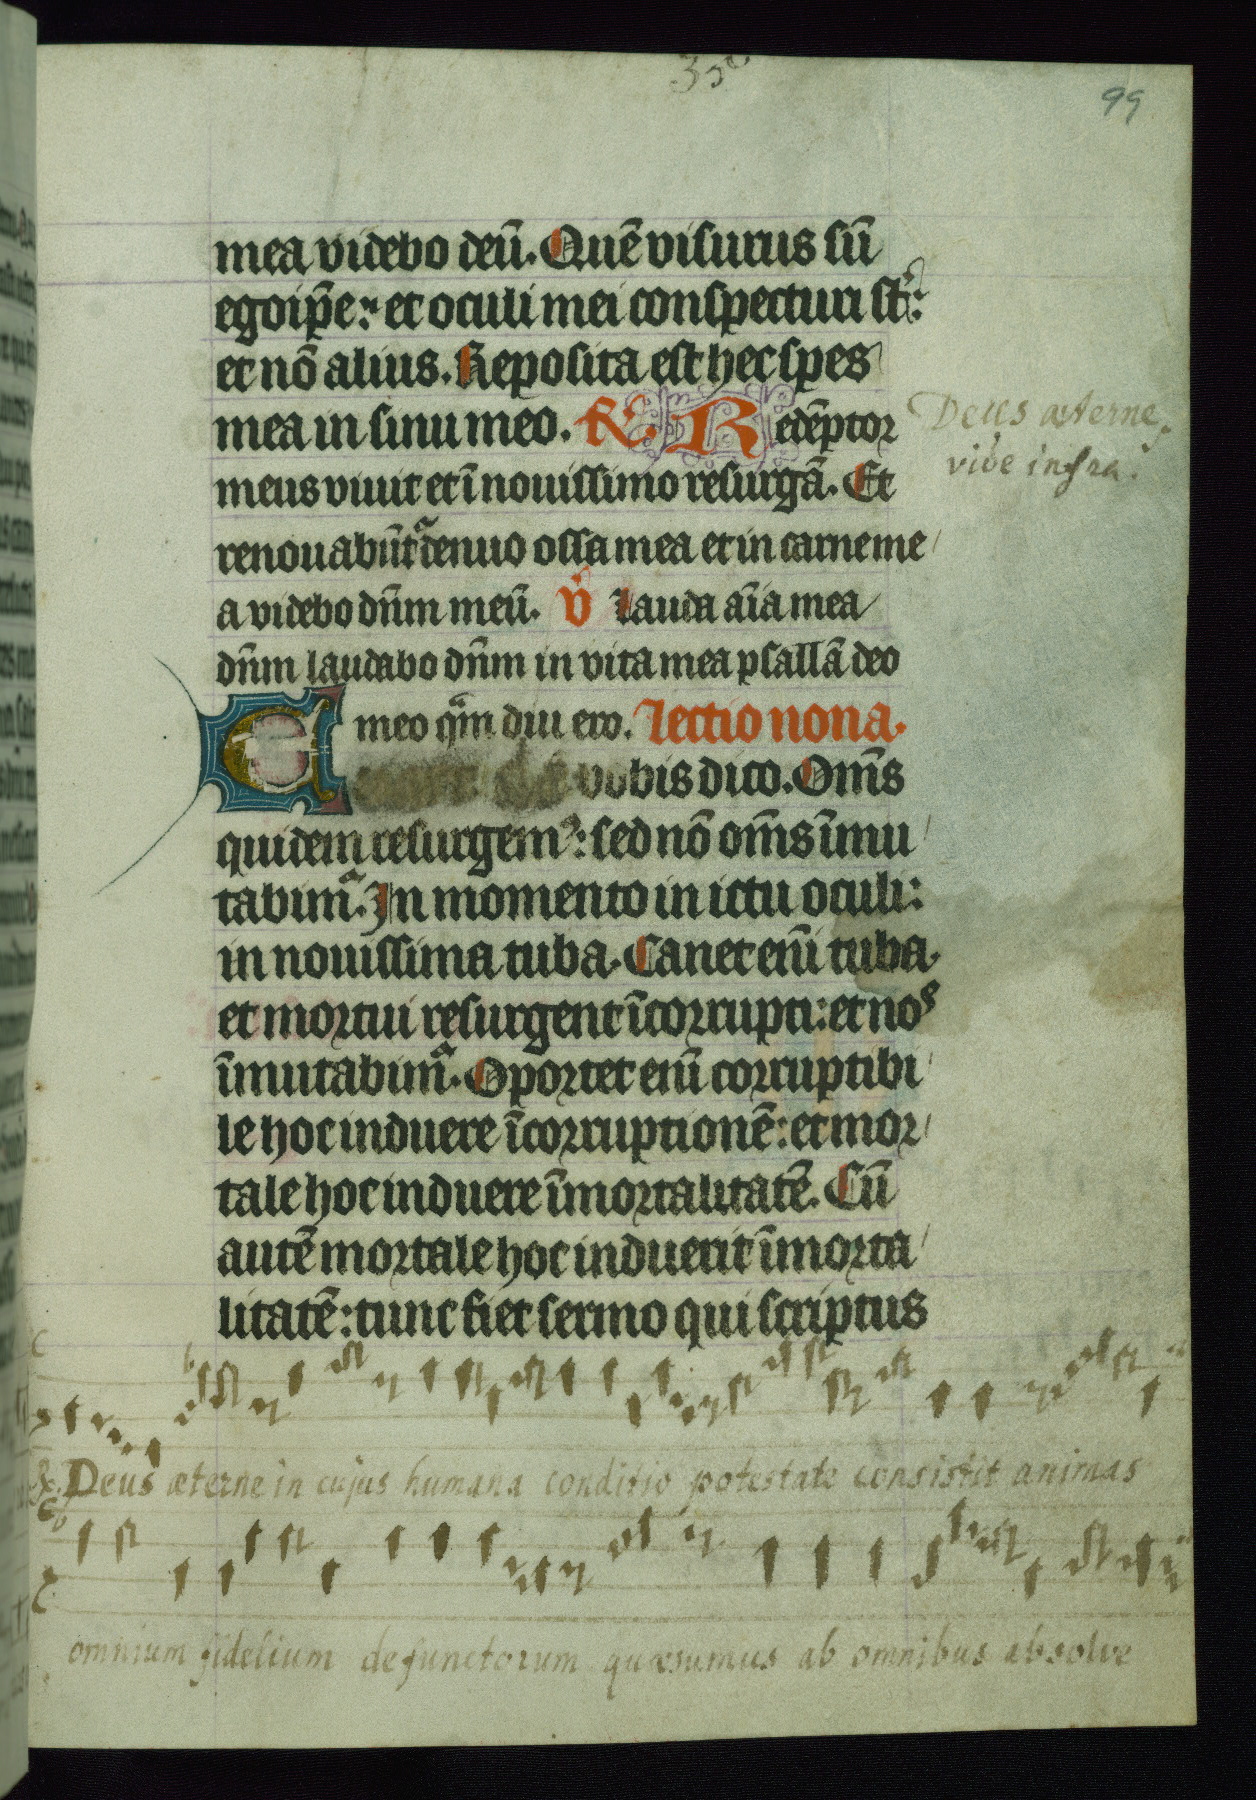 99
mea videbo deū. Quē visurus sū
ego ip̄e: et oculi mei conspecturi st̄:
et nō alius. Reposita est hec spes
mea in sinu meo. R. Redēptor
meus vivit et ī novissimo resurgā. Et
renovabūtᷣ denuo ossa mea et in carne me
a videbo dn̄m meū. V Lauda aīa mea
dn̄m laudabo dn̄m in vita mea psallā deo
meo qm̄ diu ero. Lectio nona.
vobis dico. Om̄s
quidem resurgemᷣ: sed nō om̄s īmu
tabimᷣ. In momento in ictu oculi:
in novissima tuba. Canet enī tuba
et mortui resurgent īcorrupti: et nos
īmutabimᷣ. Oportet enī corruptibi
le hoc induere īcorruptionē: et mor
tale hoc induere īmortalitatē. Cū
autē mortale hoc induerit īmorta
litatē: tunc fiet sermo qui scriptus
Deus æterne,
vide infra.
Deus æterne in cujus humana conditio potestate consistit animas
omnium fidelium defunctorum quæsumus ab omnibus absolve